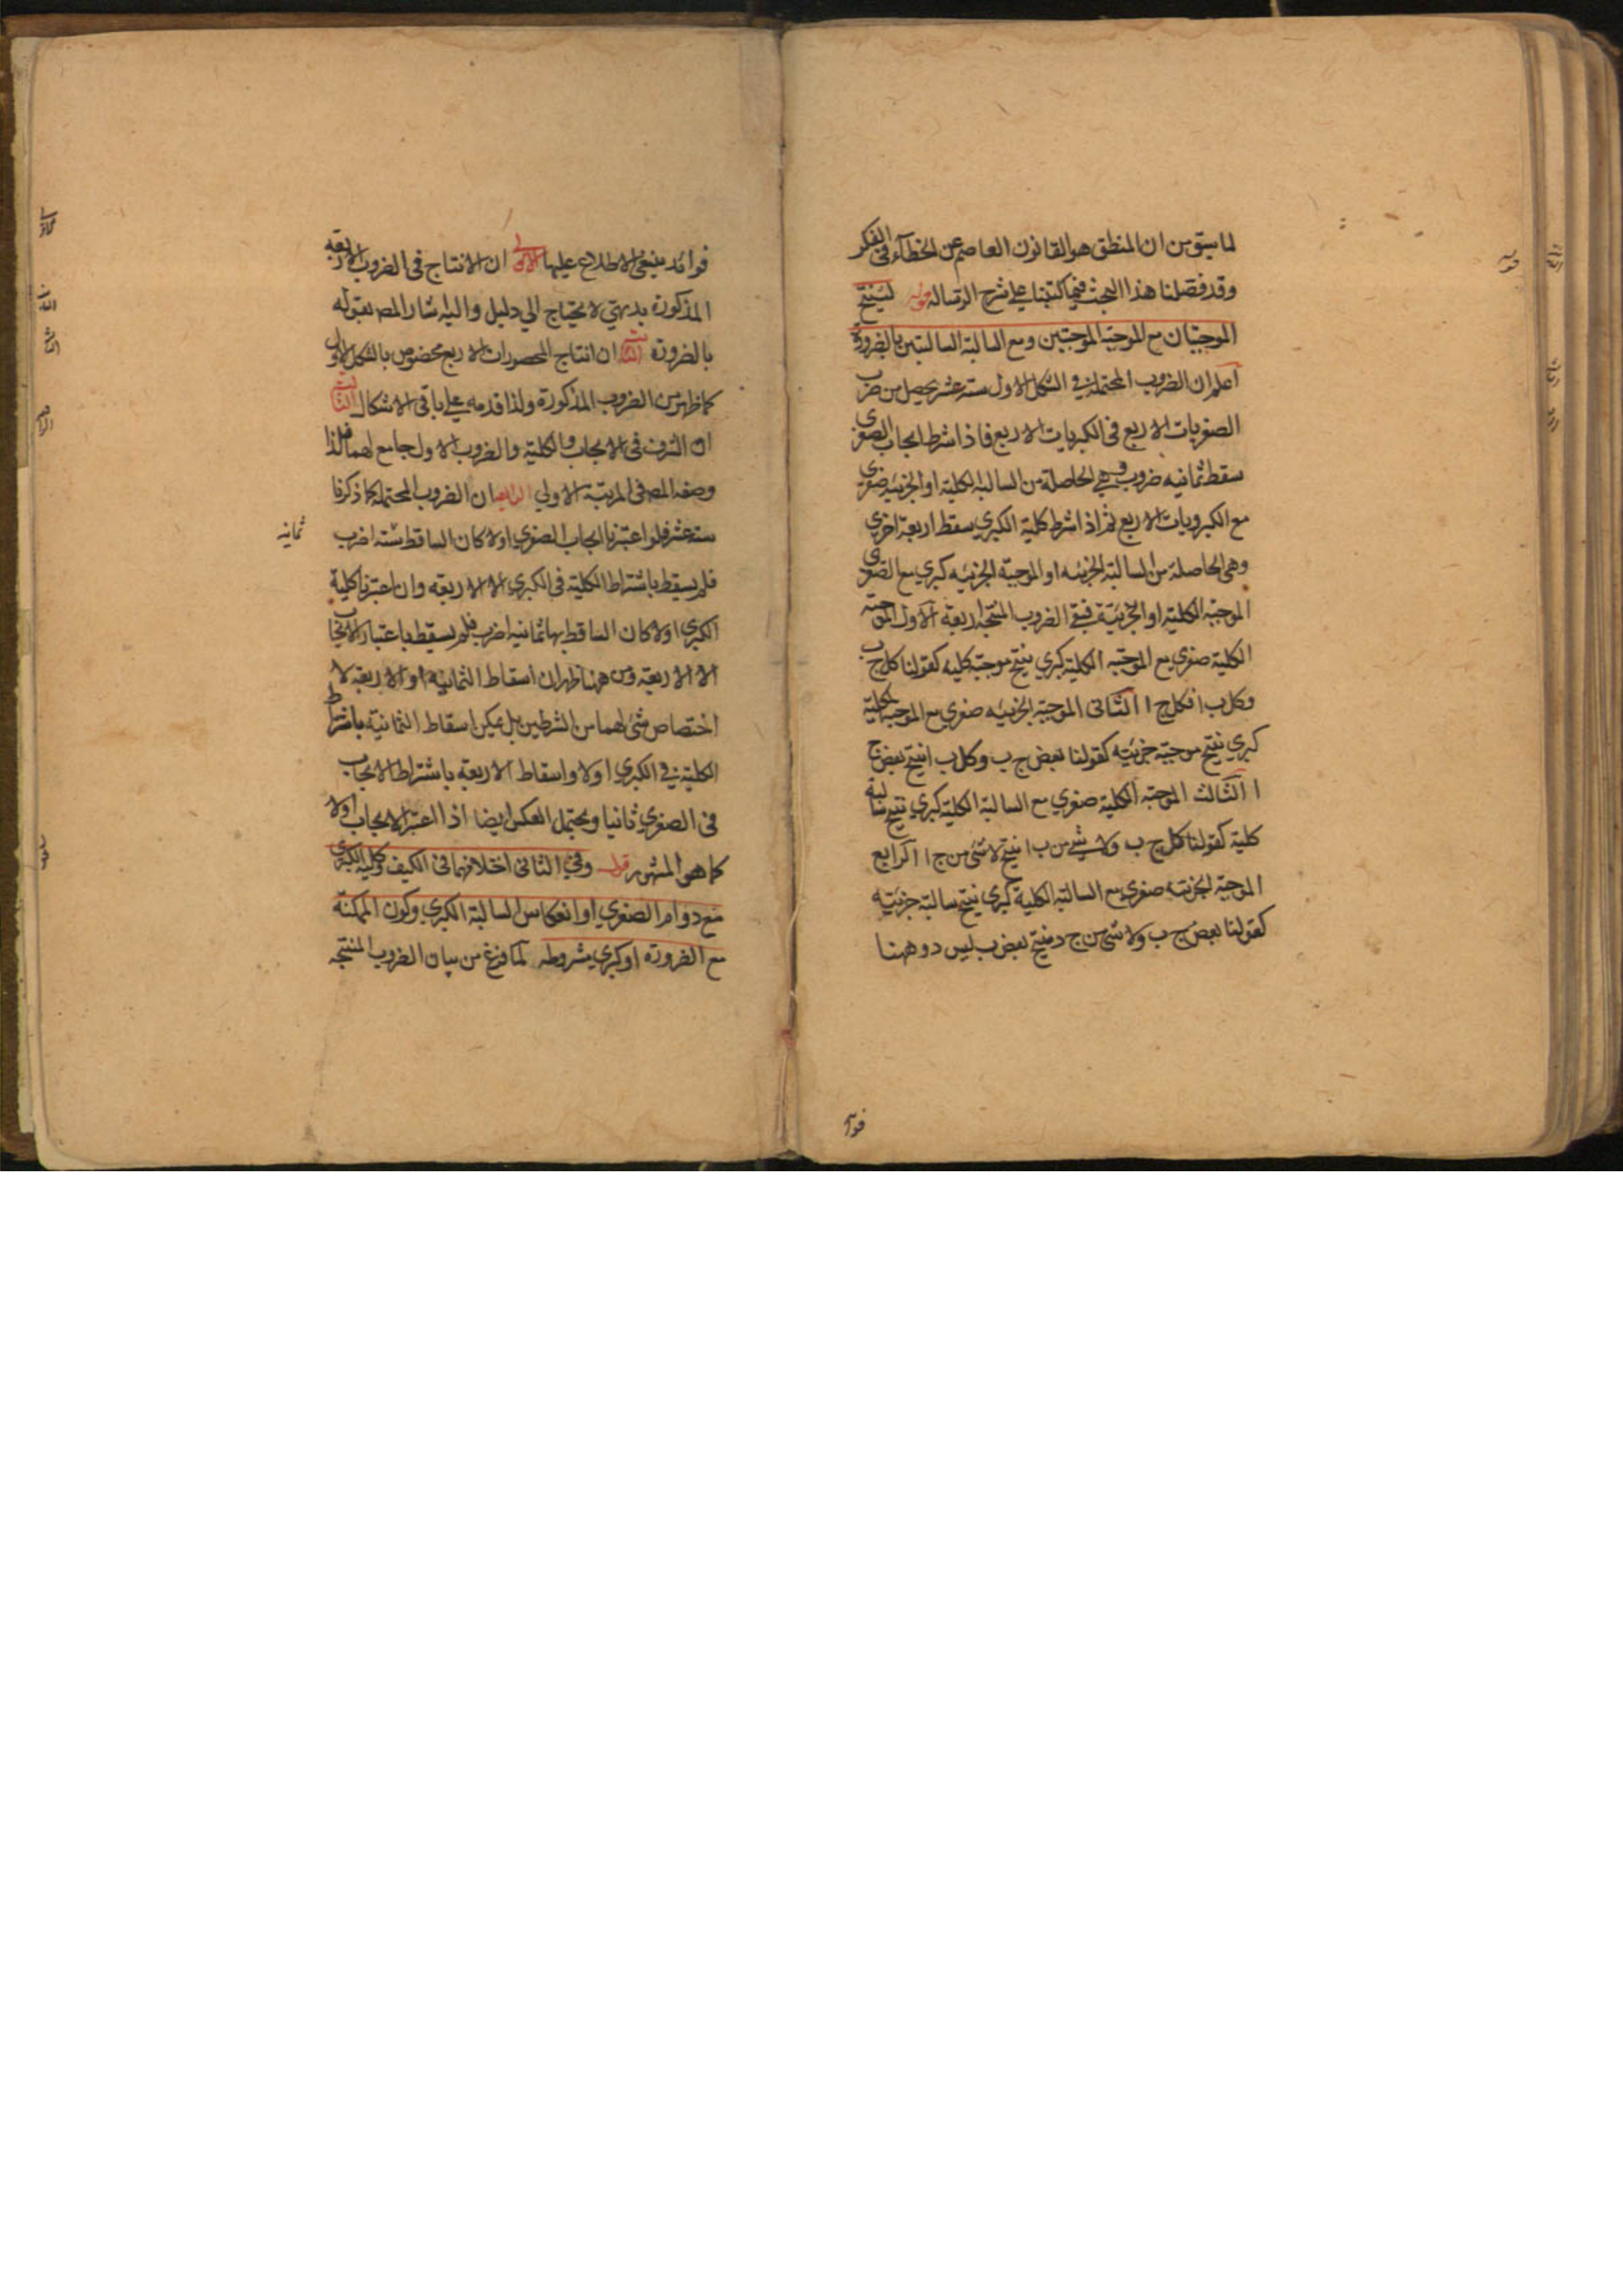 لما سبق من ان المنطق هو القانون العاصم عن الخطاء في الفكر
وقد فصلنا هذا البحث فيما كتبنا على شرح الرساله قوله لينتج
الموجبتان مع الموجبة الموجبتين ومع السالبة السالبتين بالضرورة
اعلم ان الضروب المحتملة في الشكل الاول ستة عشر يحصل من ضرب
الصغريات الاربع في الكبريات الاربع فاذا شرط ايجاب الصغرى
سقط ثمانيه ضروب وهي الحاصلة من السالبة الكلية او الجزئيه صغرى
مع الكبرويات الاربع ثم اذا شرط كلية الكبري سقط اربعة اخري
وهي الحاصلة من السالبة الجزئيه او الموجبة الجزئيه كبري مع الصغرى
الموجبة الكلية او الجزئية فبقى الضروب المنتجة اربعة الاول الموجبة
الكلية صغري مع الموجبة الكلية كبري ينتج موجبة كليه كقولنا كل ج ب
وكل ب ا فكل ج ا الثانى الموجبة الجزئيه صغري مع الموجبة الكلية
كبري ينتج موجبة جزئيه كقولنا بعض ج ب وكل ب ا ينتج بعض ج
ا الثالث الموجبة الكلية صغري مع السالبة الكلية كبري ينتج سالبة
كلية كقولنا كل ج ب ولا شيء من ب ا ينتج لا شى من ج ا الرابع
الموجبة الجزئيه صغري مع السالبة الكلية كبري ينتج سالبة جزئيه
كقولنا بعض ج ب ولا شى من ج د ينتج بعض ب ليس د وههنا
فوائد
فوائد ينبغى الاطلاع عليها الاولى ان الانتاج فى الضروب الاربعه
المذكورة بديهي لا يحتاج الي دليل واليه اشار المص بقوله
بالضرورة الثانية ان انتاج المحصورات الاربع مخصوص بالشكل الاول
كما ظهر من الضروب المذكورة ولذا قدمه على باقى الاشكال الثالثة
ان الشرف فى الايجاب والكلية والضروب الاول جامع لهما فلذا
وضعه المص فى المرتبة الاولي الرابعة ان الضروب المحتملة كما ذكرنا
ستة عشر فلو اعتبرنا ايجاب الصغري اولا كان الساقط ستة اضرب
ثمانيه
فلم يسقط باشتراط الكلية فى الكبري الا الاربعه وان اعتبرنا كلية
الكبري اولا كان الساقط بها ثمانيه اضرب فلم يسقط باعتبار الايجاب
الا الاربعة ومن ههنا ظهر ان اسقاط الثمانيه او الاربعه لا
اختصاص شى لهما من الشرطين بل يمكن اسقاط الثمانية باشتراط
الكلية فى الكبري اولا واسقاط الاربعة باشتراط الايجاب
فى الصغري ثانيا ويحتمل العكس ايضا اذا اعتبر الايجاب اولا
كما هو المشهور قوله وفي الثانى اختلافهما فى الكيف وكلية الكبرى
مع دوام الصغري او انعكاس السالبة الكبري وكون الممكنة
مع الضرورة او كبري مشروطه لما فرغ من بيان الضروب المنتجه